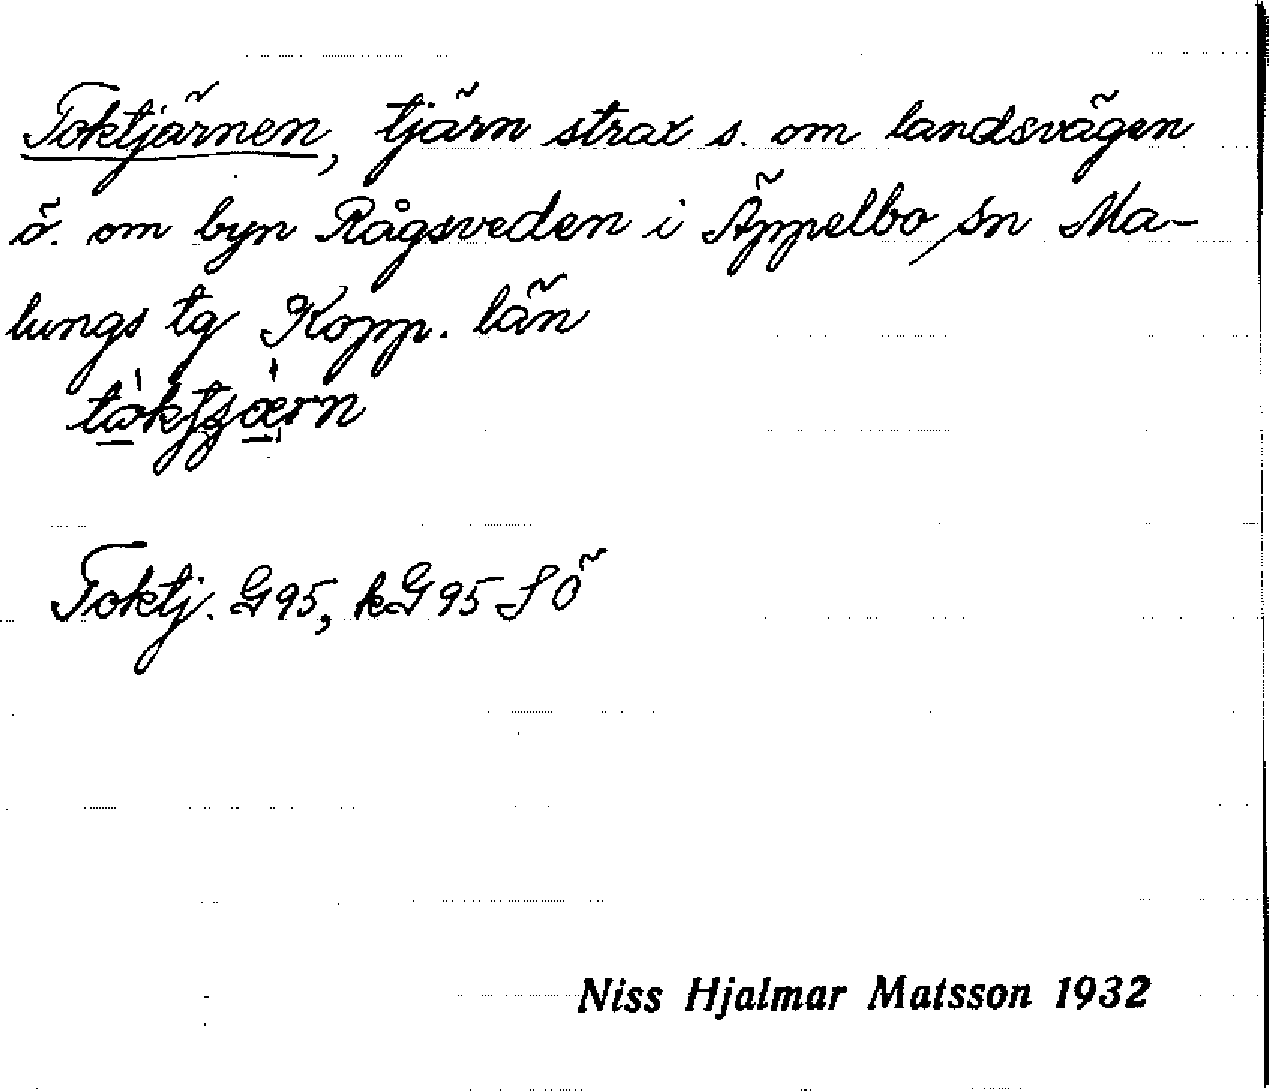 Toktjärnen, tjärn strax s. om landsvägen
ö. om byn Rågsveden i Äppelbo sn Ma-
lungs tg Kopp. län
Toktj. G95, kG95 SÖ
Niss Hjalmar Matsson 1932